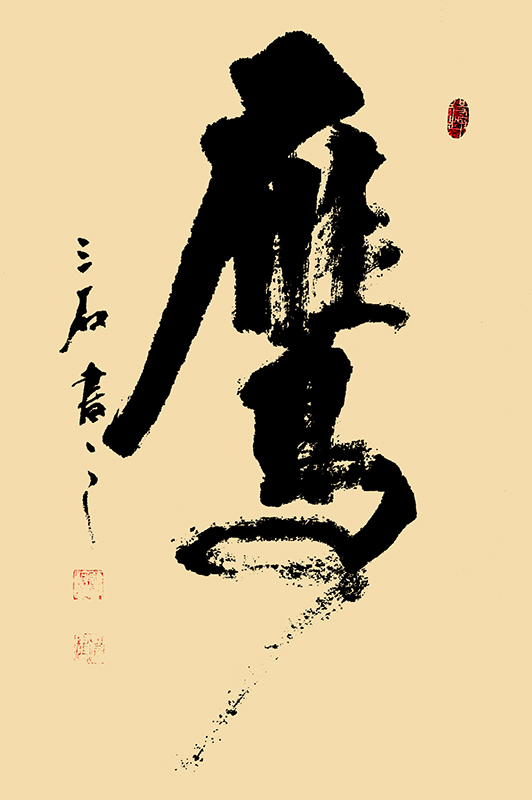 鹰
三石書